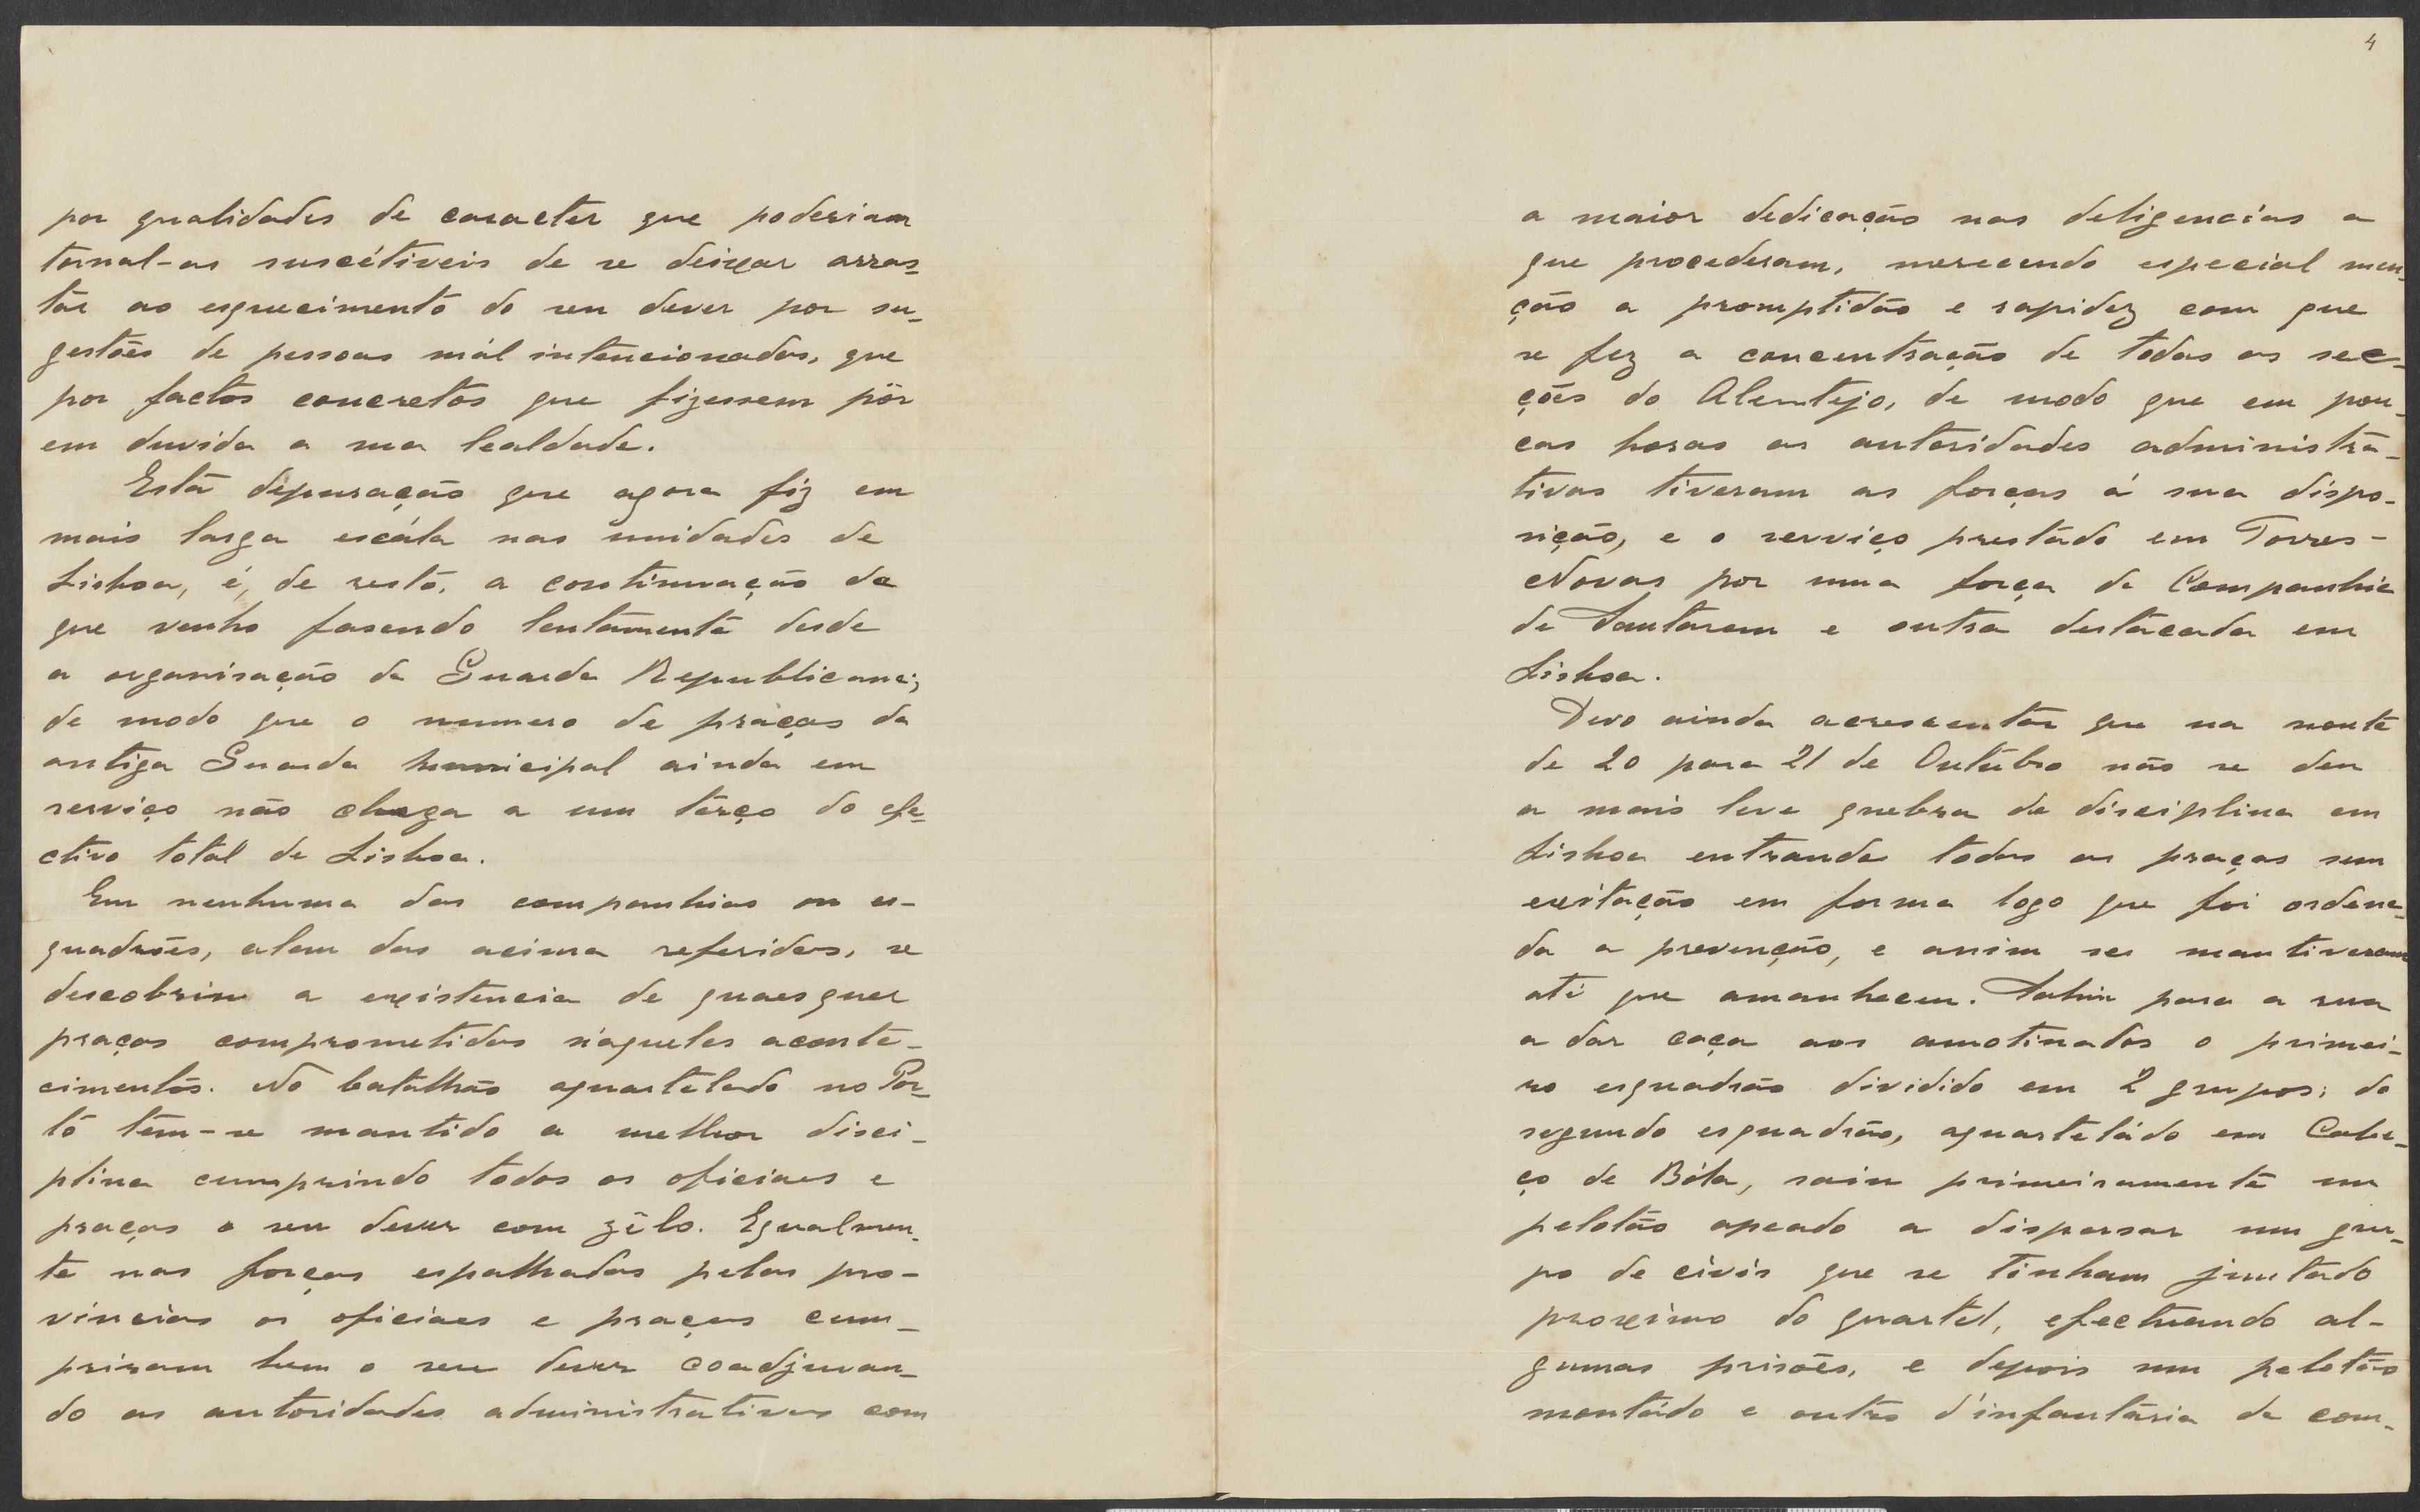 por qualidades de caracter que poderiam
tornal-os suscétiveis de se deixar arras-
tár ao esquecimento do seu dever por su-
gestões de pessoas mál intencionadas, que
por factos concretos que fizessem pôr
em duvida a sua lealdade.
Esta depuração que agora fiz em
mais larga escála nas unidades de
Lisboa, é, de resto, a continuação da
que venho fasendo lentamente desde
a organisação da Guarda Republicana;
de modo que o numero de praças da
antiga Guarda Municipal ainda em
serviço não chega a um têrço do efe-
ctivo total de Lisboa.
Em nenhuma das companhias ou es-
quadrões, alem das acima referidas, se
descobriu a existencia de quaesquer
praças comprometidas n'aqueles aconte-
cimentos. No batalhão aquartelado no Por-
to têm-se mantido a melhor disci-
plina cumprindo todos os oficiaes e
praças o seu dever com zêlo. Egualmen-
te nas forças espalhadas pelas pro-
vincias os oficiaes e praças cum-
priram bem o seu dever coadjuvan-
do as autoridades administrativas com
4
a maior dedicação nas deligencias a
que procederam, merecendo especial men-
ção a promptidão e rapidez com que
se fez a concentração de todas as sec-
ções do Alentejo, de modo que em pou-
cas horas as autoridades administra-
tivas tiveram as forças á sua dispo-
sição, e o serviço prestádo em Torres-
Novas por uma força da Companhia
de Santarem e outra destácada em
Lisboa.
Devo ainda acrescentar que na noute
de 20 para 21 de Outubro não se deu
a mais leve quebra de disciplina em
Lisboa entrando todas as praças sem
exitação em forma logo que foi ordena-
da a prevenção, e assim se mantiveram
até que amanheceu. Sahiu para a rua
a dar caça aos amotinados o primei-
ro esquadrão dividido em 2 grupos; do
segundo esquadrão, aquarteládo em Cabe-
ço de Bóla, saiu primeiramente um
pelotão apeado a dispersar um gru-
po de civis que se tinham juntado
proximo do quartel, efectuando al-
gumas prisões, e depois um pelotão
montádo e outro d'infantária da com-